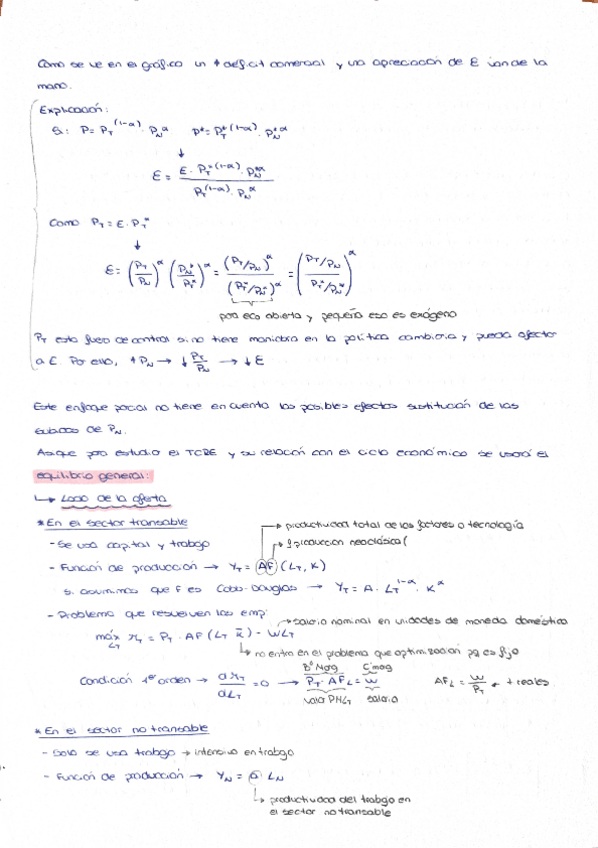 Como se ve en el gráfico un ↑ déficit comercial y una apreciación de E van de la
mano.
Explicación:
Si: P = P_T^(1-α) · P_N^α    P* = P_T*^(1-α) · P_N*^α
↓
ε = E · P_T*^(1-α) · P_N*^α / P_T^(1-α) · P_N^α
Como P_T = E · P_T*
↓
ε = (P_T/P_N)^α (P_N*/P_T*)^α = (P_T/P_N)^α / (P_T*/P_N*)^α = ((P_T/P_N) / (P_T*/P_N*))^α
para eco abierta y pequeña eso es exógeno
P_T esta fuera de control si no tiene maniobra en la política cambiaria y pueda afectar
a E. Por ello, ↑ P_N → ↓ P_T/P_N → ↓ ε
Este enfoque parcial no tiene en cuenta los posibles efectos sustitución de las
subidas de P_N.
Asique para estudio el TCRE y su relación con el ciclo económico se usará el
equilibrio general:
↳ Lado de la oferta
* En el sector transable
→ productividad total de los factores o tecnología
- Se usa capital y trabajo
→ f producción neoclásica (
- Función de producción → Y_T = AF (L_T, K)
si asumimos que F es Cobb-Douglas → Y_T = A · L_T^(1-α) · K^α
- Problema que resuelven las emp:
→ salario nominal en unidades de moneda doméstica
máx π_T = P_T · AF (L_T, K̄) - W L_T
L_T
↳ no entra en el problema que optimización pq es fijo
Bº Marg    C marg
Condición 1er orden → dπ_T/dL_T = 0 → P_T · AF_L = W    AF_L = W/P_T ← + reales
valor PMg_LT    salario
* En el sector no transable
- Solo se usa trabajo → intensivo en trabajo
- Función de producción → Y_N = a L_N
↳ productividad del trabajo en
el sector no transable